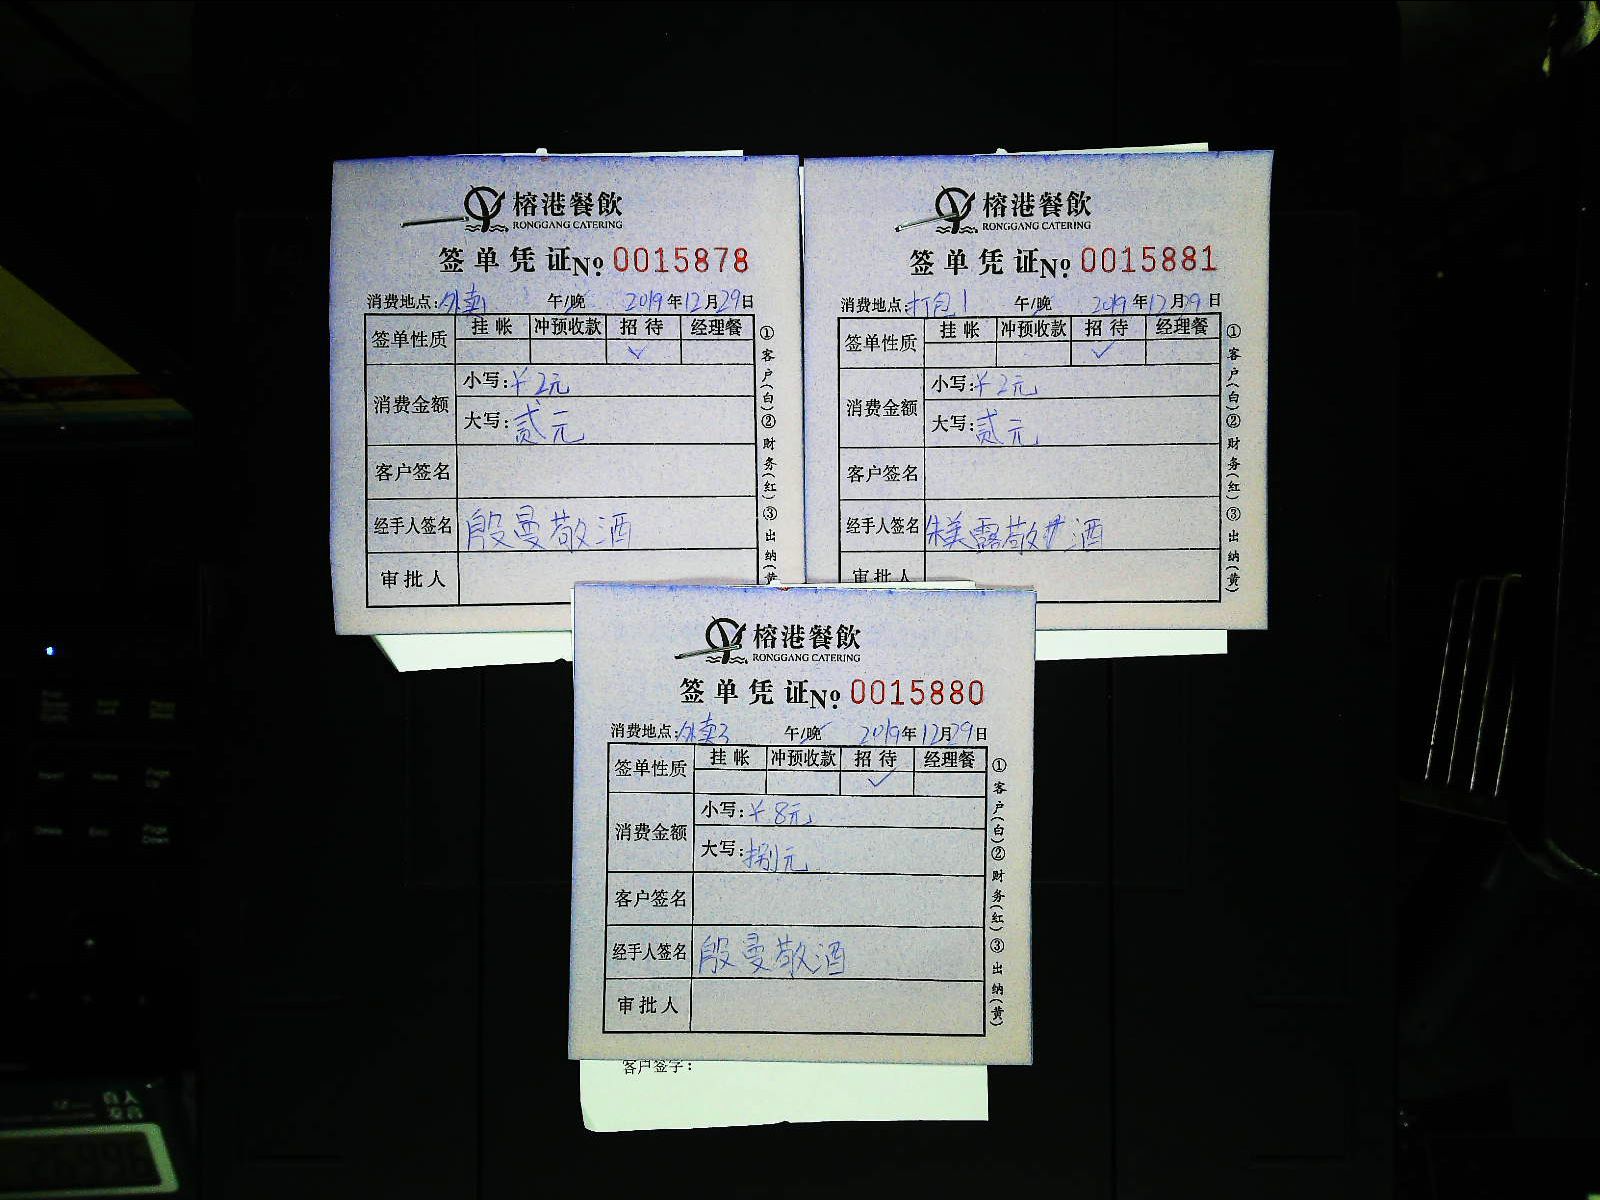 榕港餐飲
RONGGANG CATERING
签单凭证№ 0015878
消费地点:外卖1 午/晚 2019年12月29日
签单性质 挂帐 冲预收款 招待 经理餐
✓
消费金额 小写:￥2元
大写:贰元
客户签名
经手人签名 殷曼敬酒
审批人
①客户(白)②财务(红)③出纳(黄
榕港餐飲
RONGGANG CATERING
签单凭证№ 0015881
消费地点:打包1 午/晚 2019年12月29日
签单性质 挂帐 冲预收款 招待 经理餐
✓
消费金额 小写:￥2元
大写:贰元
客户签名
经手人签名 朱美露敬 酒
审批人
①客户(白)②财务(红)③出纳(黄)
榕港餐飲
RONGGANG CATERING
签单凭证№ 0015880
消费地点:外卖3 午/晚 2019年12月29日
签单性质 挂帐 冲预收款 招待 经理餐
✓
消费金额 小写:￥8元
大写:捌元
客户签名
经手人签名 殷曼敬酒
审批人
①客户(白)②财务(红)③出纳(黄)
客户签字:
Home
Page Up
Delete
End
Page Down